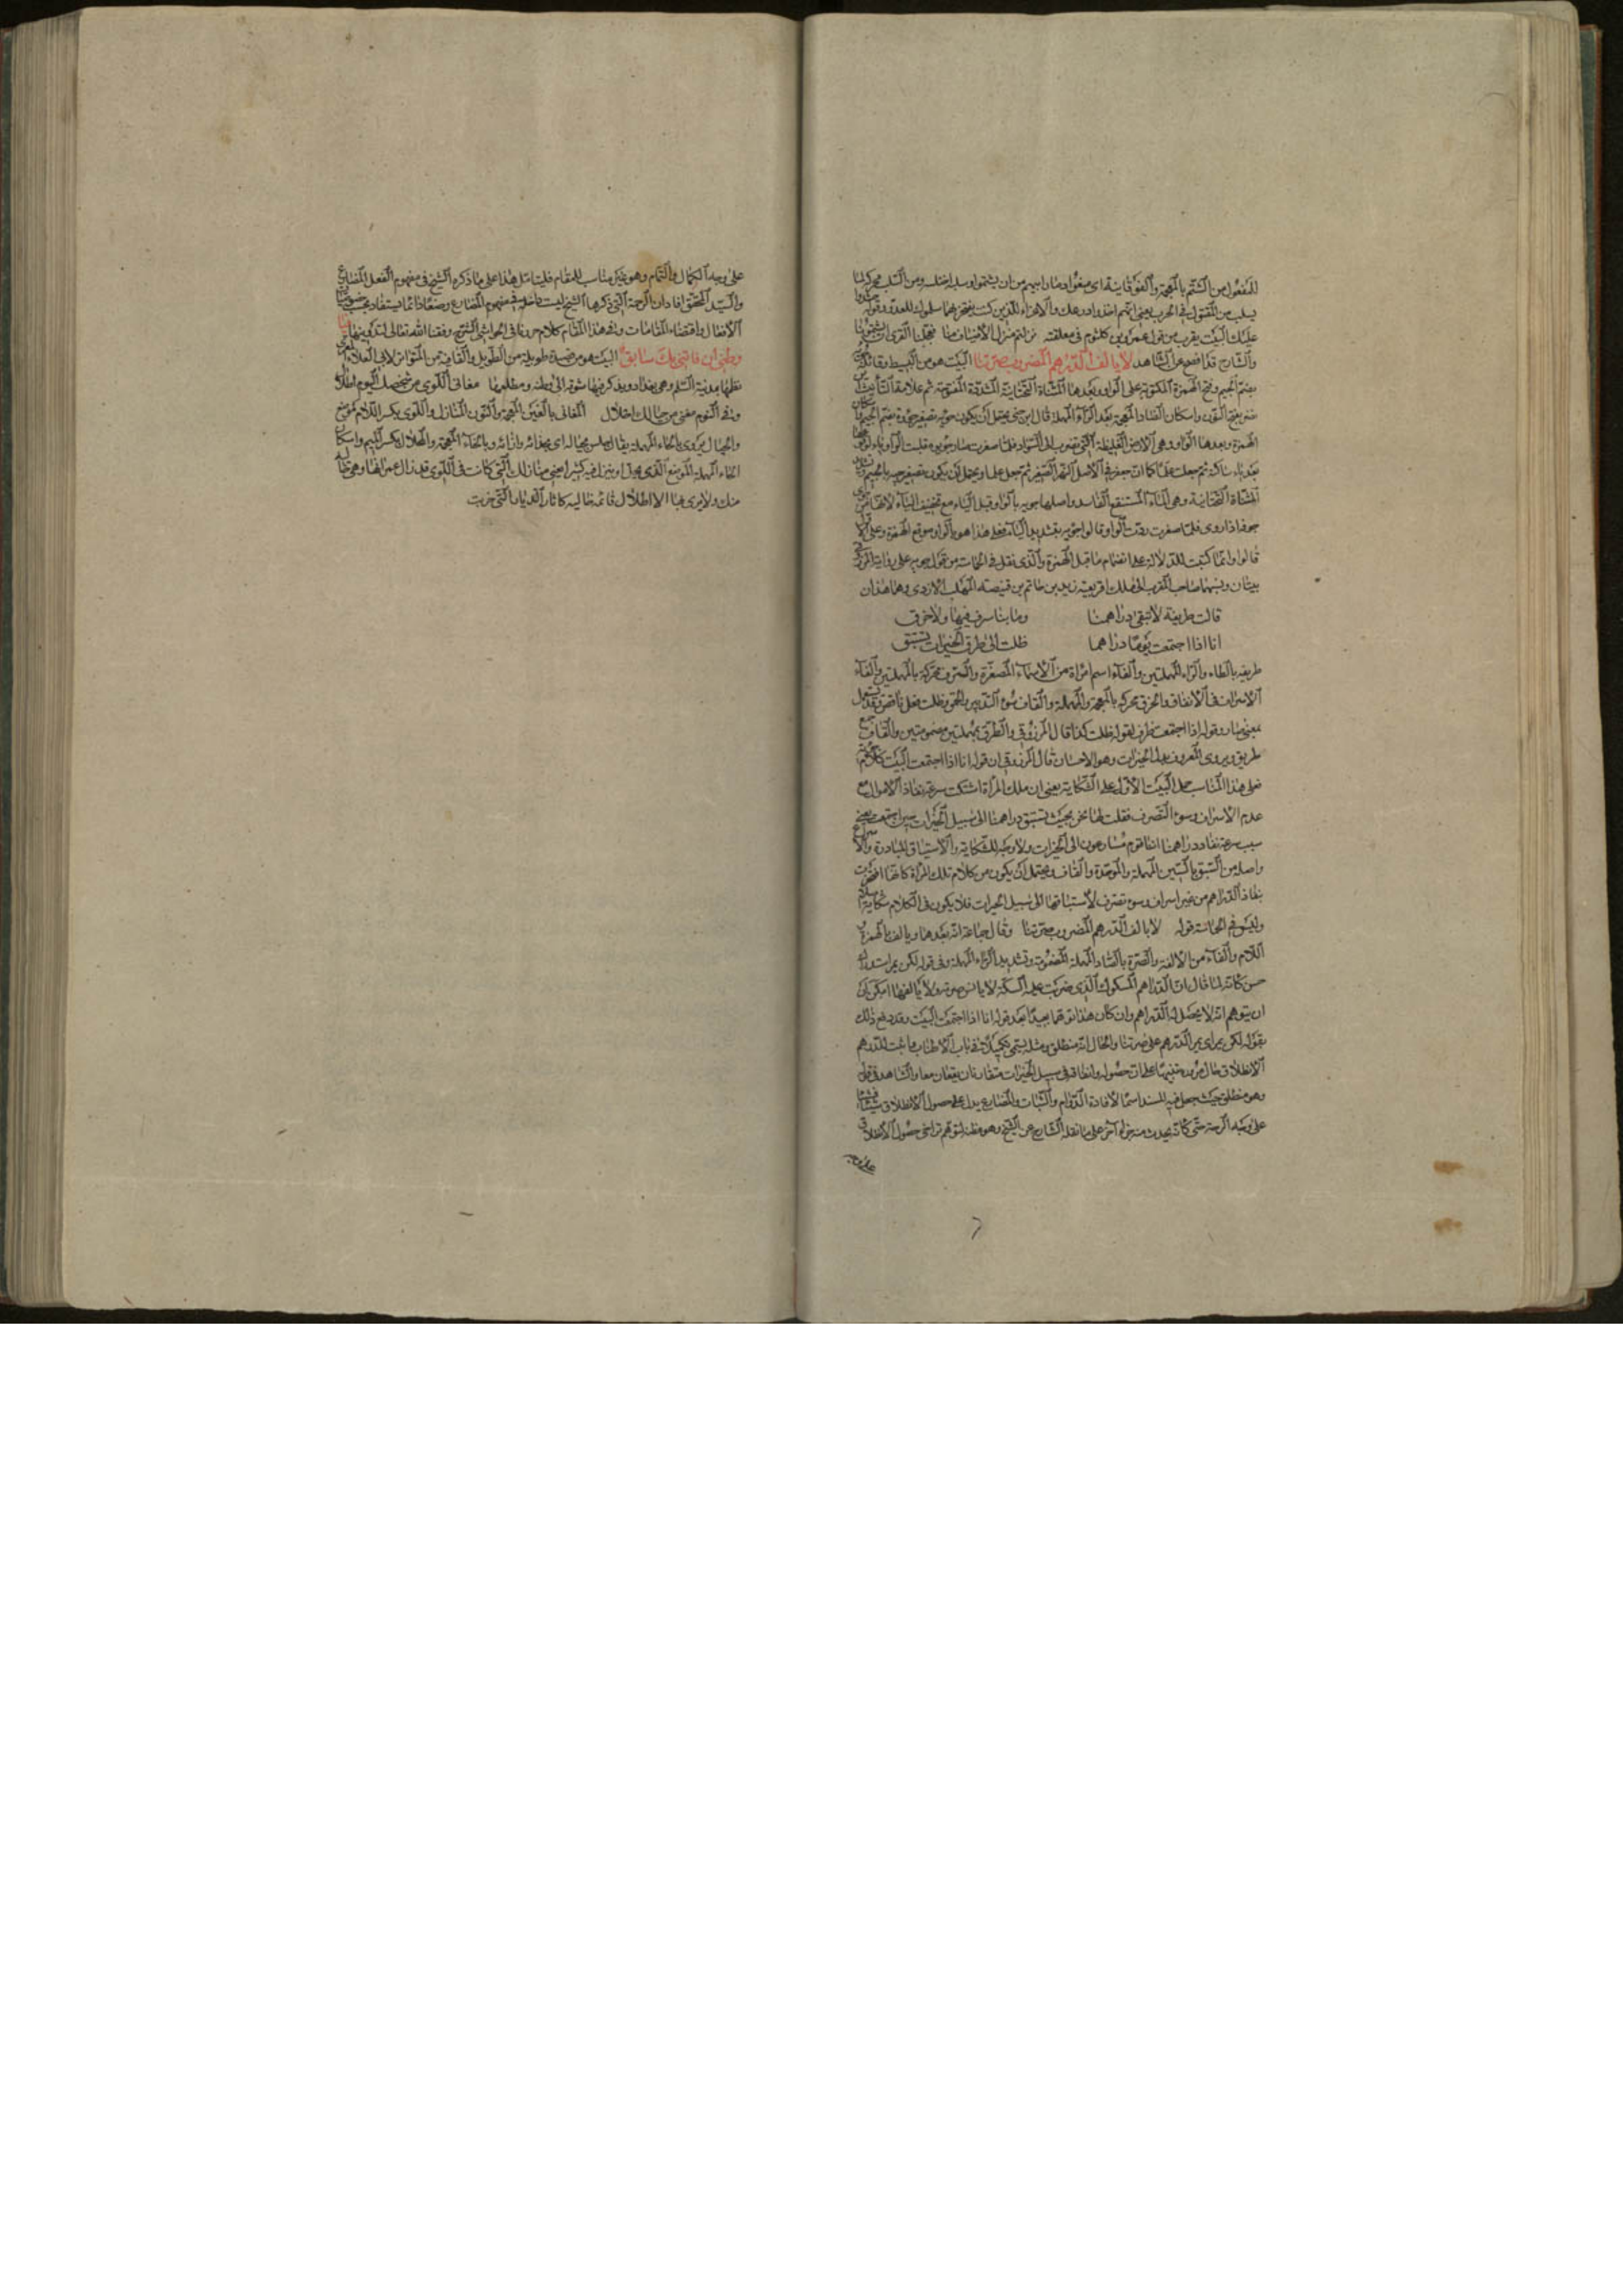 للمفعول من الشتم بالمعجمة والفوقانية اى منعوا اوصاف ابيهم من ان يشتموا وسلبه اختلسه ومن السلب محركة لما
يسلب من المقتول في الحرب يعنى انهم اخذوا ورهك والاعزاء الذين كنت تفتخر بهما سلموك للعدو وقوله
عليك البيت يقرب من قول عمرو بن كلثوم فى معلقته نزلتم منزل الاضياف منا فعجلنا القرى ان تشتمونا
والشارح قد افصح عن الشاهد لا يألف الدرهم المضروب صرتنا البيت هو من البسيط وقائله
بضم الجيم وفتح الهمزة المكتوبة على الواو وبعدها المثناة التحتانية المشددة المفتوحة ثم علامة التأنيث
نضر بفتح النون واسكان الضاد المعجمة بعد الراء المهملة قال ابن جنى يحتمل ان يكون جؤية تصغير جؤوة بضم الجيم
الهمزة وبعدها الواو وهى الارض الغليظة التى تضرب الى السواد فلما صغرت صار جويوه قلبت الواو ياء لوقوعها
بعد ياء ساكنة ثم جعلت علما كما ان جعفر في الاصل النهر الصغير ثم جعل علما ويحتمل ان يكون تصغير جية بالجيم
المثناة التحتانية وهى الماء المستنقع الفاسد واصلها جويه بالواو قبل الياء مع تخفيف الياء لانها من
جوف اذا روى فلما صغرت ردت الواو قالوا جوية بتشديد الياء فعلى هذا هو بالواو موقع الهمزة وعلى الاول
قالوا وانما كتبت للدلالة على انضمام ما قبل الهمزة والذى نقل في الحماسة من قول جوية على رواية المرزوقى
بيتان ونسبهما صاحب المغرب الى ملك افريقية زيد بن حاتم بن قبيصة المهلب الازدى وهما هذان
قالت طريفة لا تبقى دراهمنا وما بنا سرف فيها ولا خرق
انا اذا اجتمعت يوما دراهما ظلت الى طرق الخيرات تستبق
طريفة بالطاء والراء المهملتين والفاء اسم امرأة من الاسماء المصغرة والسرف محركة بالمهملتين والفاء
الاسراف فى الانفاق والخرق محركة بالمعجمة والمهملة والقاف سوء التدبير والحمق وظلت فعل ناقص وقد يستعمل
بمعنى صار وقوله اذا اجتمعت ظرف لقوله ظلت كذا قال المرزوقى والطرق بمهملتين مضمومتين والقاف جمع
طريق ويروى المعروف بدل الخيرات وهو الاحسان قال المرزوقى ان قوله انا اذا اجتمعت البيت كلام تم
فعلى هذا المناسب حمل البيت الاول على الشكاية يعنى ان ملك المرأة اشتكت سرعة نفاذ الاموال مع
عدم الاسراف وسوء التصرف فقلت لها نحن بحيث تستبق دراهمنا الى سبيل الخيرات يعنى
سبب سرعة نفاد دراهمنا اننا قوم مسارعون الى الخيرات ولا وجه للشكاية والاستباق المبادرة والاسراع
واصله من السبق بالسين المهملة والموحدة والقاف ويحتمل ان يكون من كلام تلك المرأة كانها افتخرت
بنفاذ الدراهم من غير اسراف وسوء تصرف لاستباقها الى سبيل الخيرات فلا يكون فى الكلام شكاية
وليس في الحماسة قوله لا يالف الدرهم المضروب صرتنا وقال جماعة انه بعدها ويالف بالهمزة
اللام والفاء من الالفة والصرة بالصاد المهملة المضمومة وتشديد الراء المهملة وفى قوله لكن يمر استدراك
حسن كانه لما قال ان الدراهم المسكوك الذى ضربت عليه السكة لا يانس صرته ولا يالفها امكن
ان يتوهم انه لا يحصل له الدراهم وان كان هذا توهما بعيدا بعد قوله انا اذا اجتمعت البيت وقد دفع ذلك
بقوله لكن يمر اى يمر الدرهم على صرتنا والحال انه منطلق ومثله يسمى تكميلا فى باب الاطناب واثبت للدرهم
الانطلاق حال مروره تنبيها على ان حصوله وانطلاقه فى سبيل الخيرات متقارنان يقعان معا والشاهد فى قوله
وهو منطلق حيث جعل فيه المسند اسما لافادة الدوام والثبات والمضارع يدل على حصول الانطلاق شيئا فشيئا
على وجه الرحمة حتى كانه يحدث منه جزء آخر على ما نقله الشارح عن الشيخ وهو مظنة لتوهم تراخى حصول الانطلاق
على وجه
على وجه الكمال والتمام وهو غير مناسب للمقام فليتامل هذا على ما ذكره الشيخ فى مفهوم الفعل المضارع
والسيد المحقق افاد ان الرحمة التى ذكرها الشيخ ليست داخلة فى مفهوم المضارع وضعا وانما يستفاد بحسب خصوصيات
الافعال واقتضاء المقامات وفى هذا المقام كلام حررناه فى الحواشى الشرح وفقنا الله تعالى لتدوينها
وطنى ان فاتنى بك سابق البيت هو من قصيدة طويلة من الطويل والقافية من المتواتر لابى العلاء المعرى
نظمها بمدينة السلم وهى بغداد ويذكر فيها شوقه الى وطنه ومطلعها مغانى اللوى من شخصك اليوم اطلال
وفى النوم مغنى من خيالك محلال المغانى بالغين المعجمة والنون المنازل واللوى بكسر اللام موضع
والخيال يروى بالحاء المهملة يقال جلس بحياله اى بحذائه وازائه وبالخاء المعجمة والمحلال بكسر الميم واسكان
الحاء المهملة الموضع الذى يحل وينزل فيه كثيرا يعنى منازلك التى كانت فى اللوى قد زال عمرانها وهى خالية
منك ولا يرى بها الا اطلال قائمة خالية كاثار الديار التى خربت